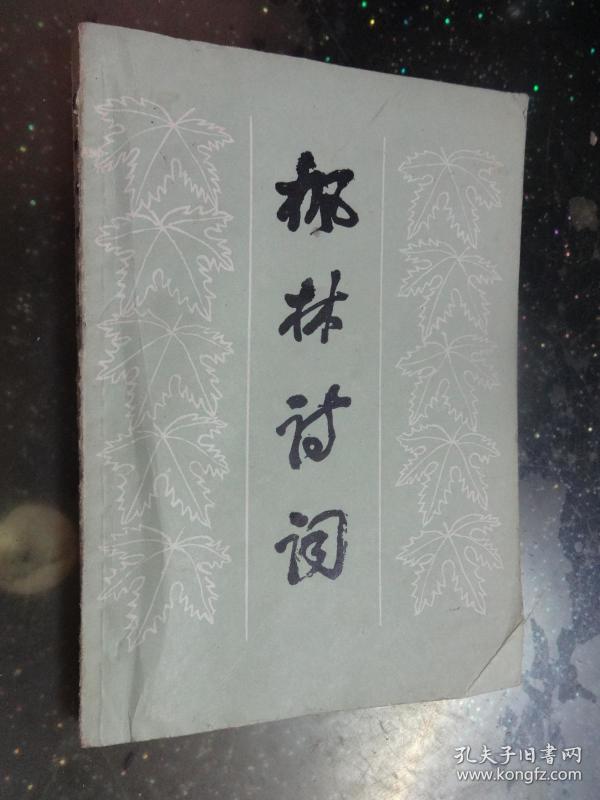 枫林诗词
孔夫子旧書网
www.kongfz.com